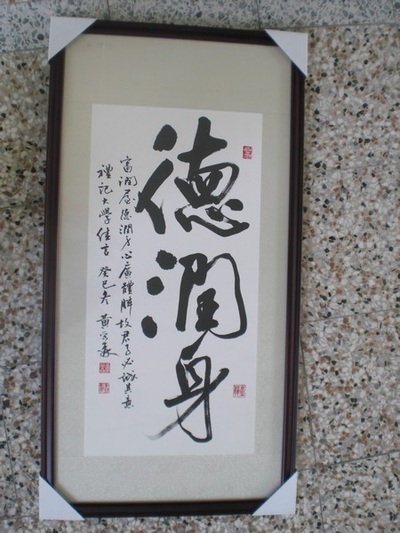 德潤身
富潤屋德潤身心廣體胖故君子必誠其意
禮記大學佳言 癸巳冬 黃